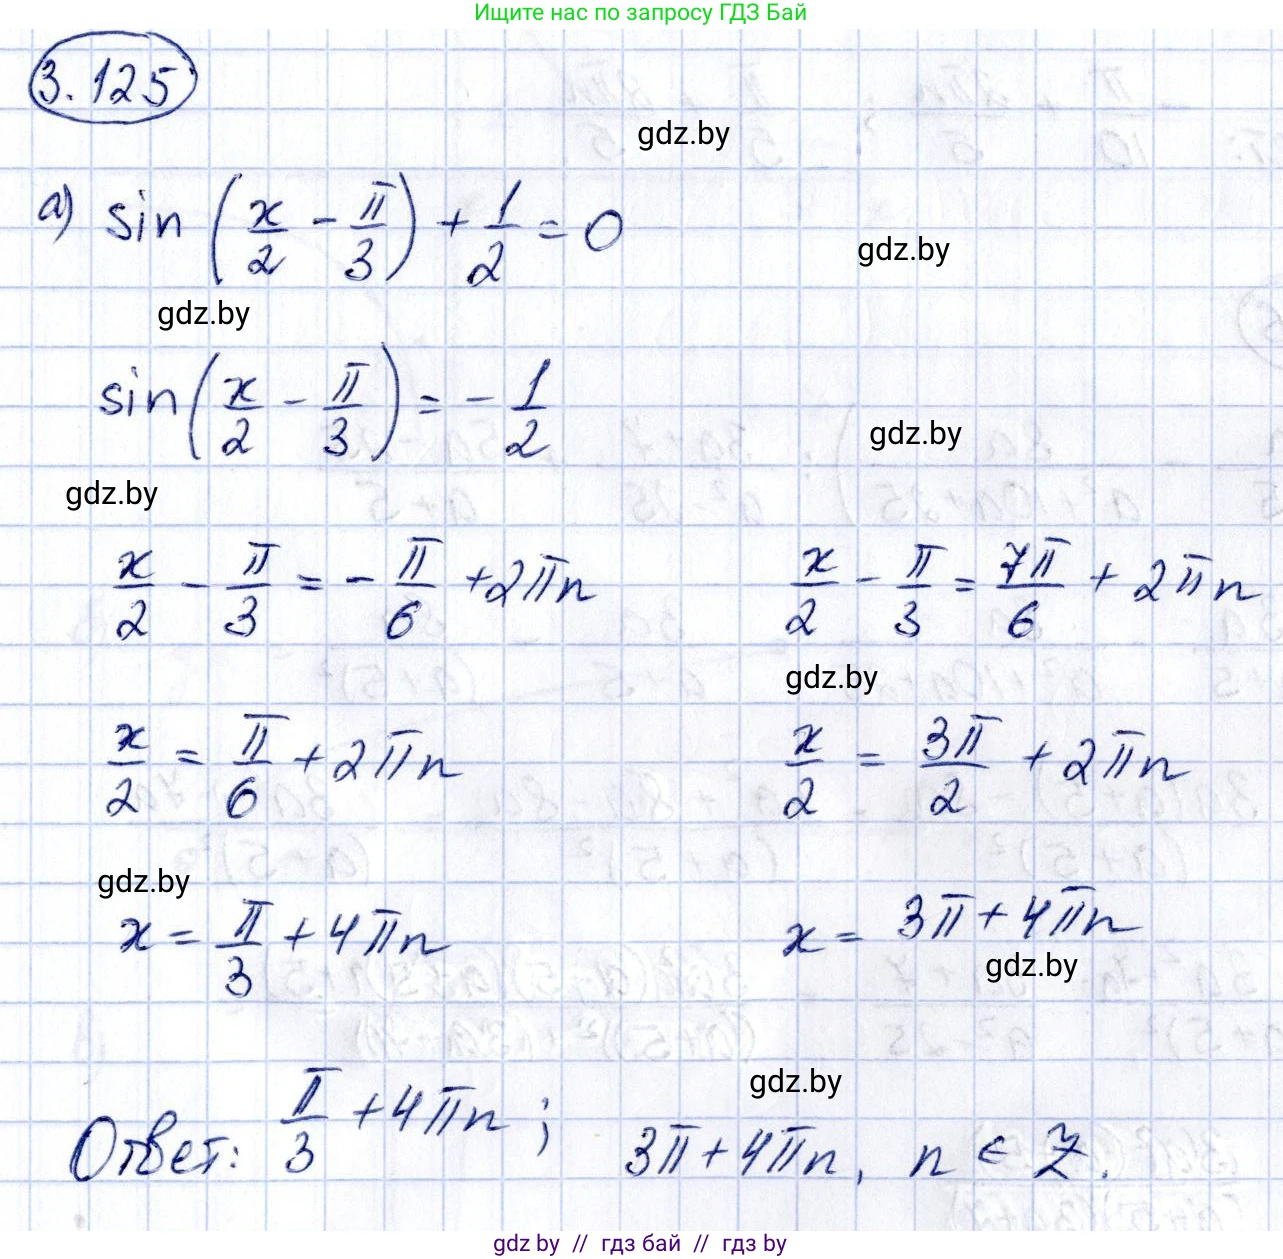 Ищите нас по запросу ГДЗ Бай
3.125
gdz.by
а) sin (x/2 - π/3) + 1/2 = 0
gdz.by
gdz.by
sin(x/2 - π/3) = - 1/2
gdz.by
gdz.by
x/2 - π/3 = - π/6 + 2πn x/2 - π/3 = 7π/6 + 2πn
gdz.by
x/2 = π/6 + 2πn x/2 = 3π/2 + 2πn
gdz.by
x = π/3 + 4πn x = 3π + 4πn
gdz.by
gdz.by
Ответ: π/3 + 4πn ; 3π + 4πn, n ∈ Z.
gdz by // гдз бай // гдз by